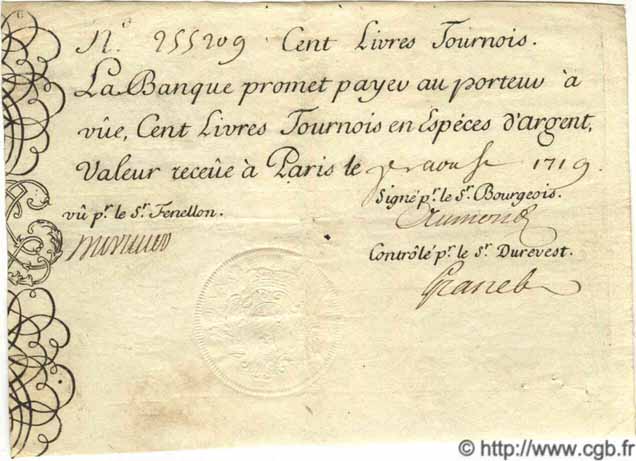 N.º 255209 Cent Livres Tournois.
La Banque promet payer au porteur à
vûe, Cent Livres Tournois en Espéces d'argent,
Valeur receüe à Paris le 1719
Signé p.r le S.r Bourgeois.
vû p.r le S.r Fenellon.
Contrôlé p.r le S.r Durevest.
Granet
© http://www.cgb.fr